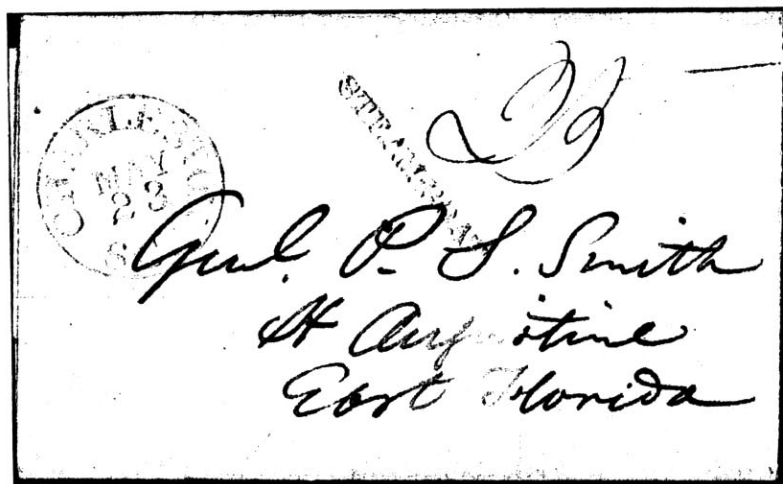 CHARLESTON
MAY
23
S
STEAMBOAT
Genl. P. S. Smith
St Augustine
East Florida